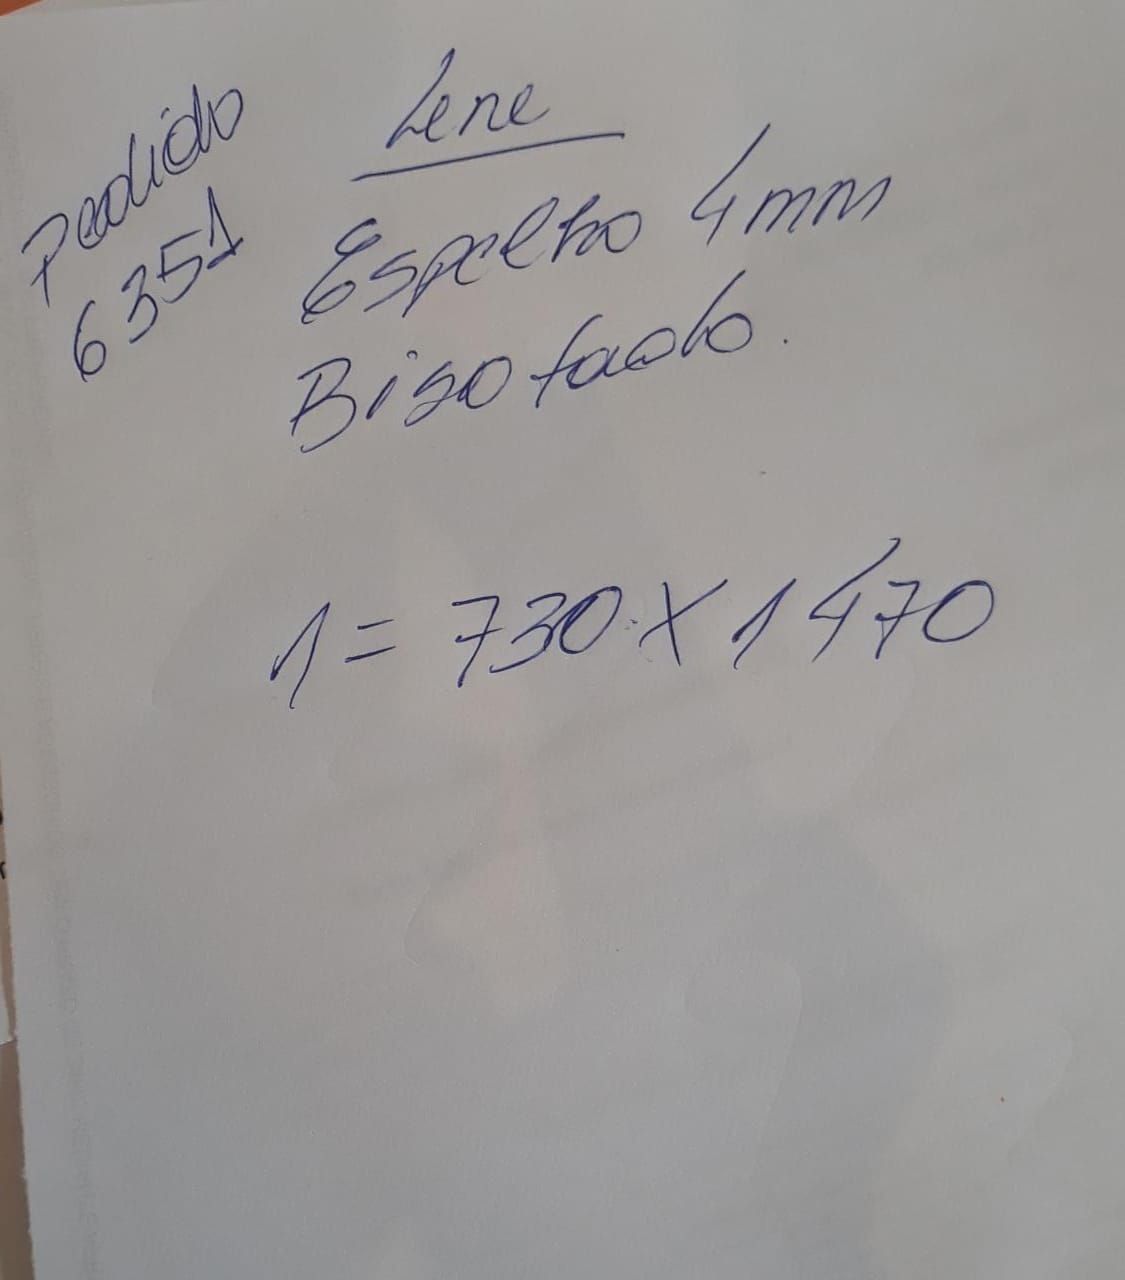 Pedido
6351
Lene
Espelho 4mm
Bisotado.
1 = 730 X 1470